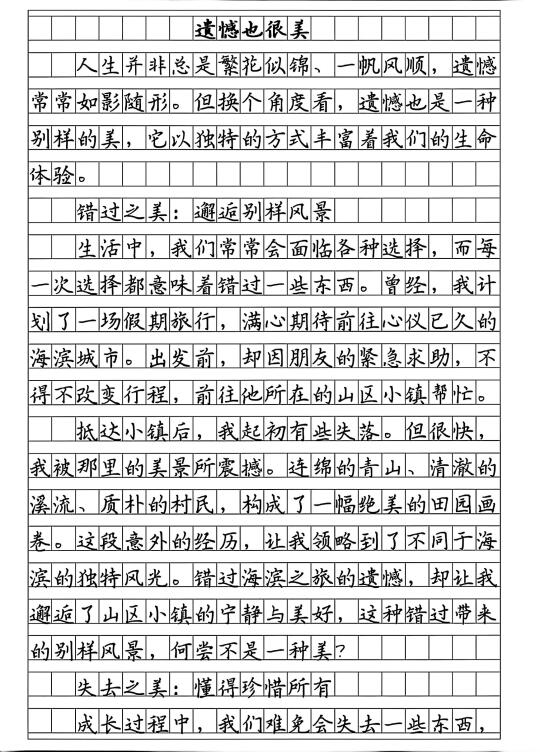 遗憾也很美
人生并非总是繁花似锦、一帆风顺，遗憾
常常如影随形。但换个角度看，遗憾也是一种
别样的美，它以独特的方式丰富着我们的生命
体验。
错过之美：邂逅别样风景
生活中，我们常常会面临各种选择，而每
一次选择都意味着错过一些东西。曾经，我计
划了一场假期旅行，满心期待前往心仪已久的
海滨城市。出发前，却因朋友的紧急求助，不
得不改变行程，前往他所在的山区小镇帮忙。
抵达小镇后，我起初有些失落。但很快，
我被那里的美景所震撼。连绵的青山、清澈的
溪流、质朴的村民，构成了一幅绝美的田园画
卷。这段意外的经历，让我领略到了不同于海
滨的独特风光。错过海滨之旅的遗憾，却让我
邂逅了山区小镇的宁静与美好，这种错过带来
的别样风景，何尝不是一种美？
失去之美：懂得珍惜所有
成长过程中，我们难免会失去一些东西，